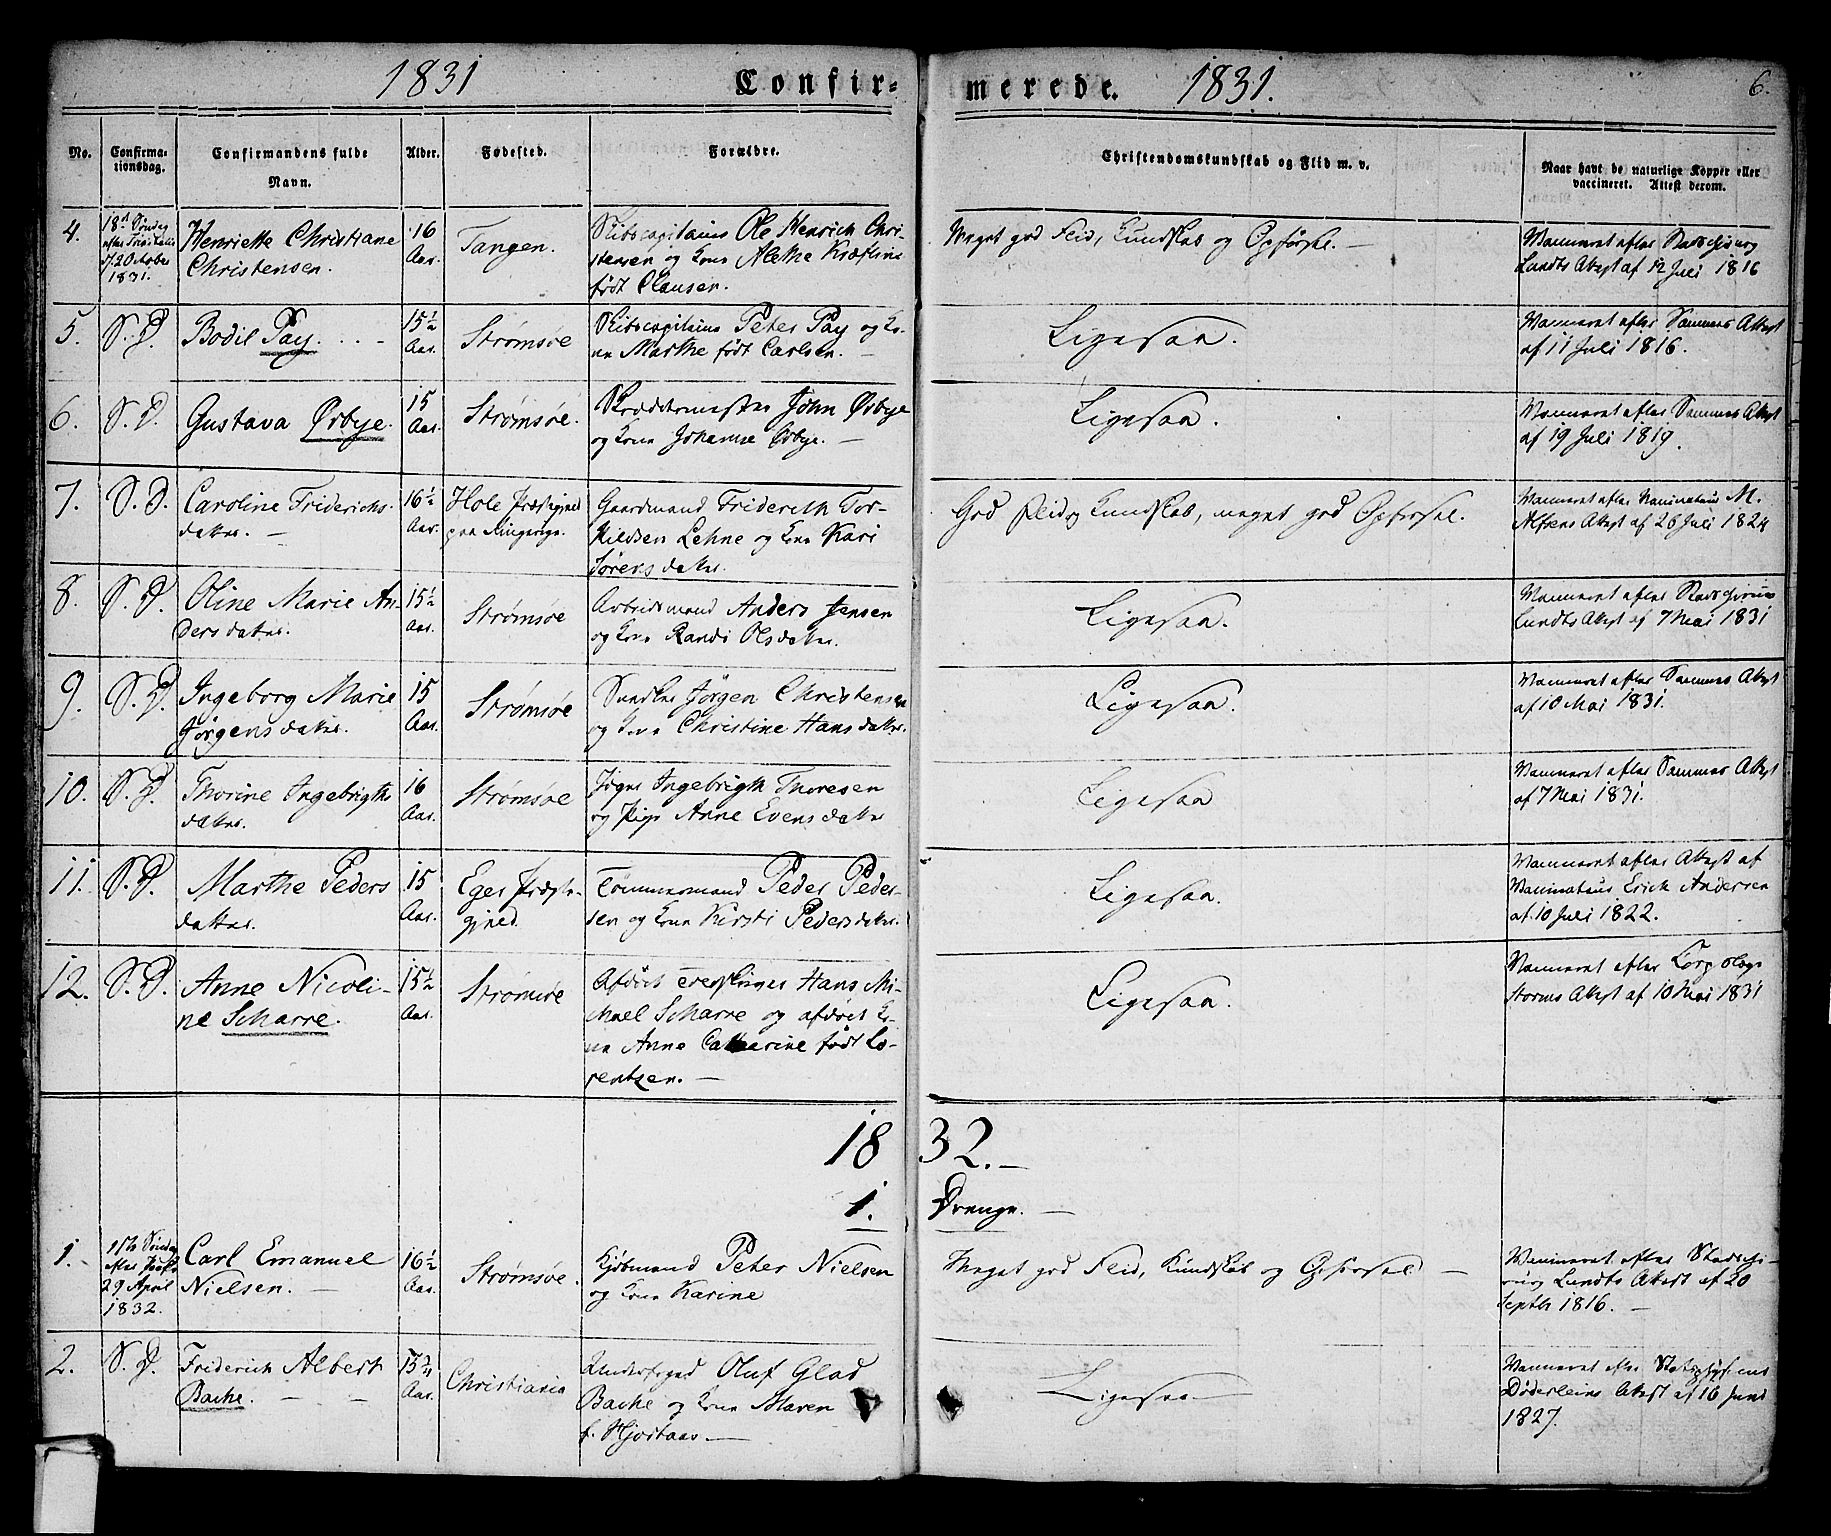 1831 Confir-
merede. 1831. 6.
No. Confirma-
tionsdag. Confirmandens fulde
Navn. Alder. Fødested. Forældre. Christendomskundskab og Flid m. v. Naar havt de naturlige Kopper eller
vaccineret. Attest derom.
4. 18d Søndag
after Trinitatis
2 October
1831. Henriette Christiane
Christensen. 16
Aar. Tangen. Skibscapitain Ole Henrich Chri-
stensen og Kone Alethe
født Clausen. Meget god Flid, Kundskab og Opførsel. — Vaccineret efter Stadschirurg
Lundts Attest af 12 Juli 1816
5. S. D. Bodil Pay. 15½
Aar. Strømsøe Skibscapitain Peter Pay og Ko-
ne Marthe født Carlsen. — Ligesaa. Vaccineret efter Sammes Attest
af 11 Juli 1816.
6. S. D. Gustava Ørbye. 15
Aar. Strømsøe. Skræddermester John Ørbye
og Kone Johanne Ørbye. — Ligesaa. Vaccineret efter Sammes Attest
af 19 Juli 1819.
7. S. D. Caroline Friderichs-
datter. — 16½
Aar. Hole Præstegjeld
paa Ringerige. Gaardmand Friderich Tor-
kildsen Lehne og Kone Kari
Sørensdatter. God Flid og Kundskab, meget god Opførsel. Vaccineret efter Vaccinateur M.
Alfsens Attest af 26 Juli 1824
8. S. D. Oline Marie An-
dersdatter. 15½
Aar. Strømsøe Arbeidsmand Anders Jensen
og Kone Randi Olsdatter. Ligesaa. Vaccineret efter Stadschirurg
Lundts Attest af 7 Mai 1831
9. S. D. Ingeborg Marie
Jørgensdatter. 15
Aar. Strømsøe Snedker Jørgen Christensen
og Kone Christine Hansdatter. Ligesaa. Vaccineret efter Sammes Attest
af 10 Mai 1831.
10. S. D. Thorine Ingebrigts-
datter. 16
Aar. Strømsøe Ingebrigth Thoresen
og Pige Anne Evensdatter Ligesaa Vaccineret efter Sammes Attest
af 7 Mai 1831.
11. S. D. Marthe Peders-
datter. 15
Aar. Eger Præste-
gjeld. Tømmermand Peder Peder-
sen og Kone Kirsti Pedersdatter. Ligesaa. Vaccineret efter Attest af
Vaccinateur Erich Andersen
af 10 Juli 1822.
12. S. D. Anne Nicoli-
ne Scharre. 15½
Aar. Strømsøe Afdøde Hans Mi-
chael Scharre og afdøde Ko-
ne Anne Catharine født Lo-
rentzen. — Ligesaa. Vaccineret efter
Storms Attest af 10 Mai 1831
1832. —
1. Drenge. —
1. 1ste Søndag
efter Paaske
29 April
1832. Carl Emanuel
Nielsen. — 16½
Aar. Strømsøe. Kjøbmand Peter Nielsen
og Kone Karine Meget god Flid, Kundskab og Opførsel — Vaccineret efter Stadschi-
rurg Lundts Attest af 20
Septbr 1816. —
2. S. D. Friderich Albert
Bache. — — 15
Aar. Christiania Oluf Glad
Bache og Kone Maren
f. Hjortaas — Ligesaa. Vaccineret efter
Døderleins Attest af 16 Juni
1827.